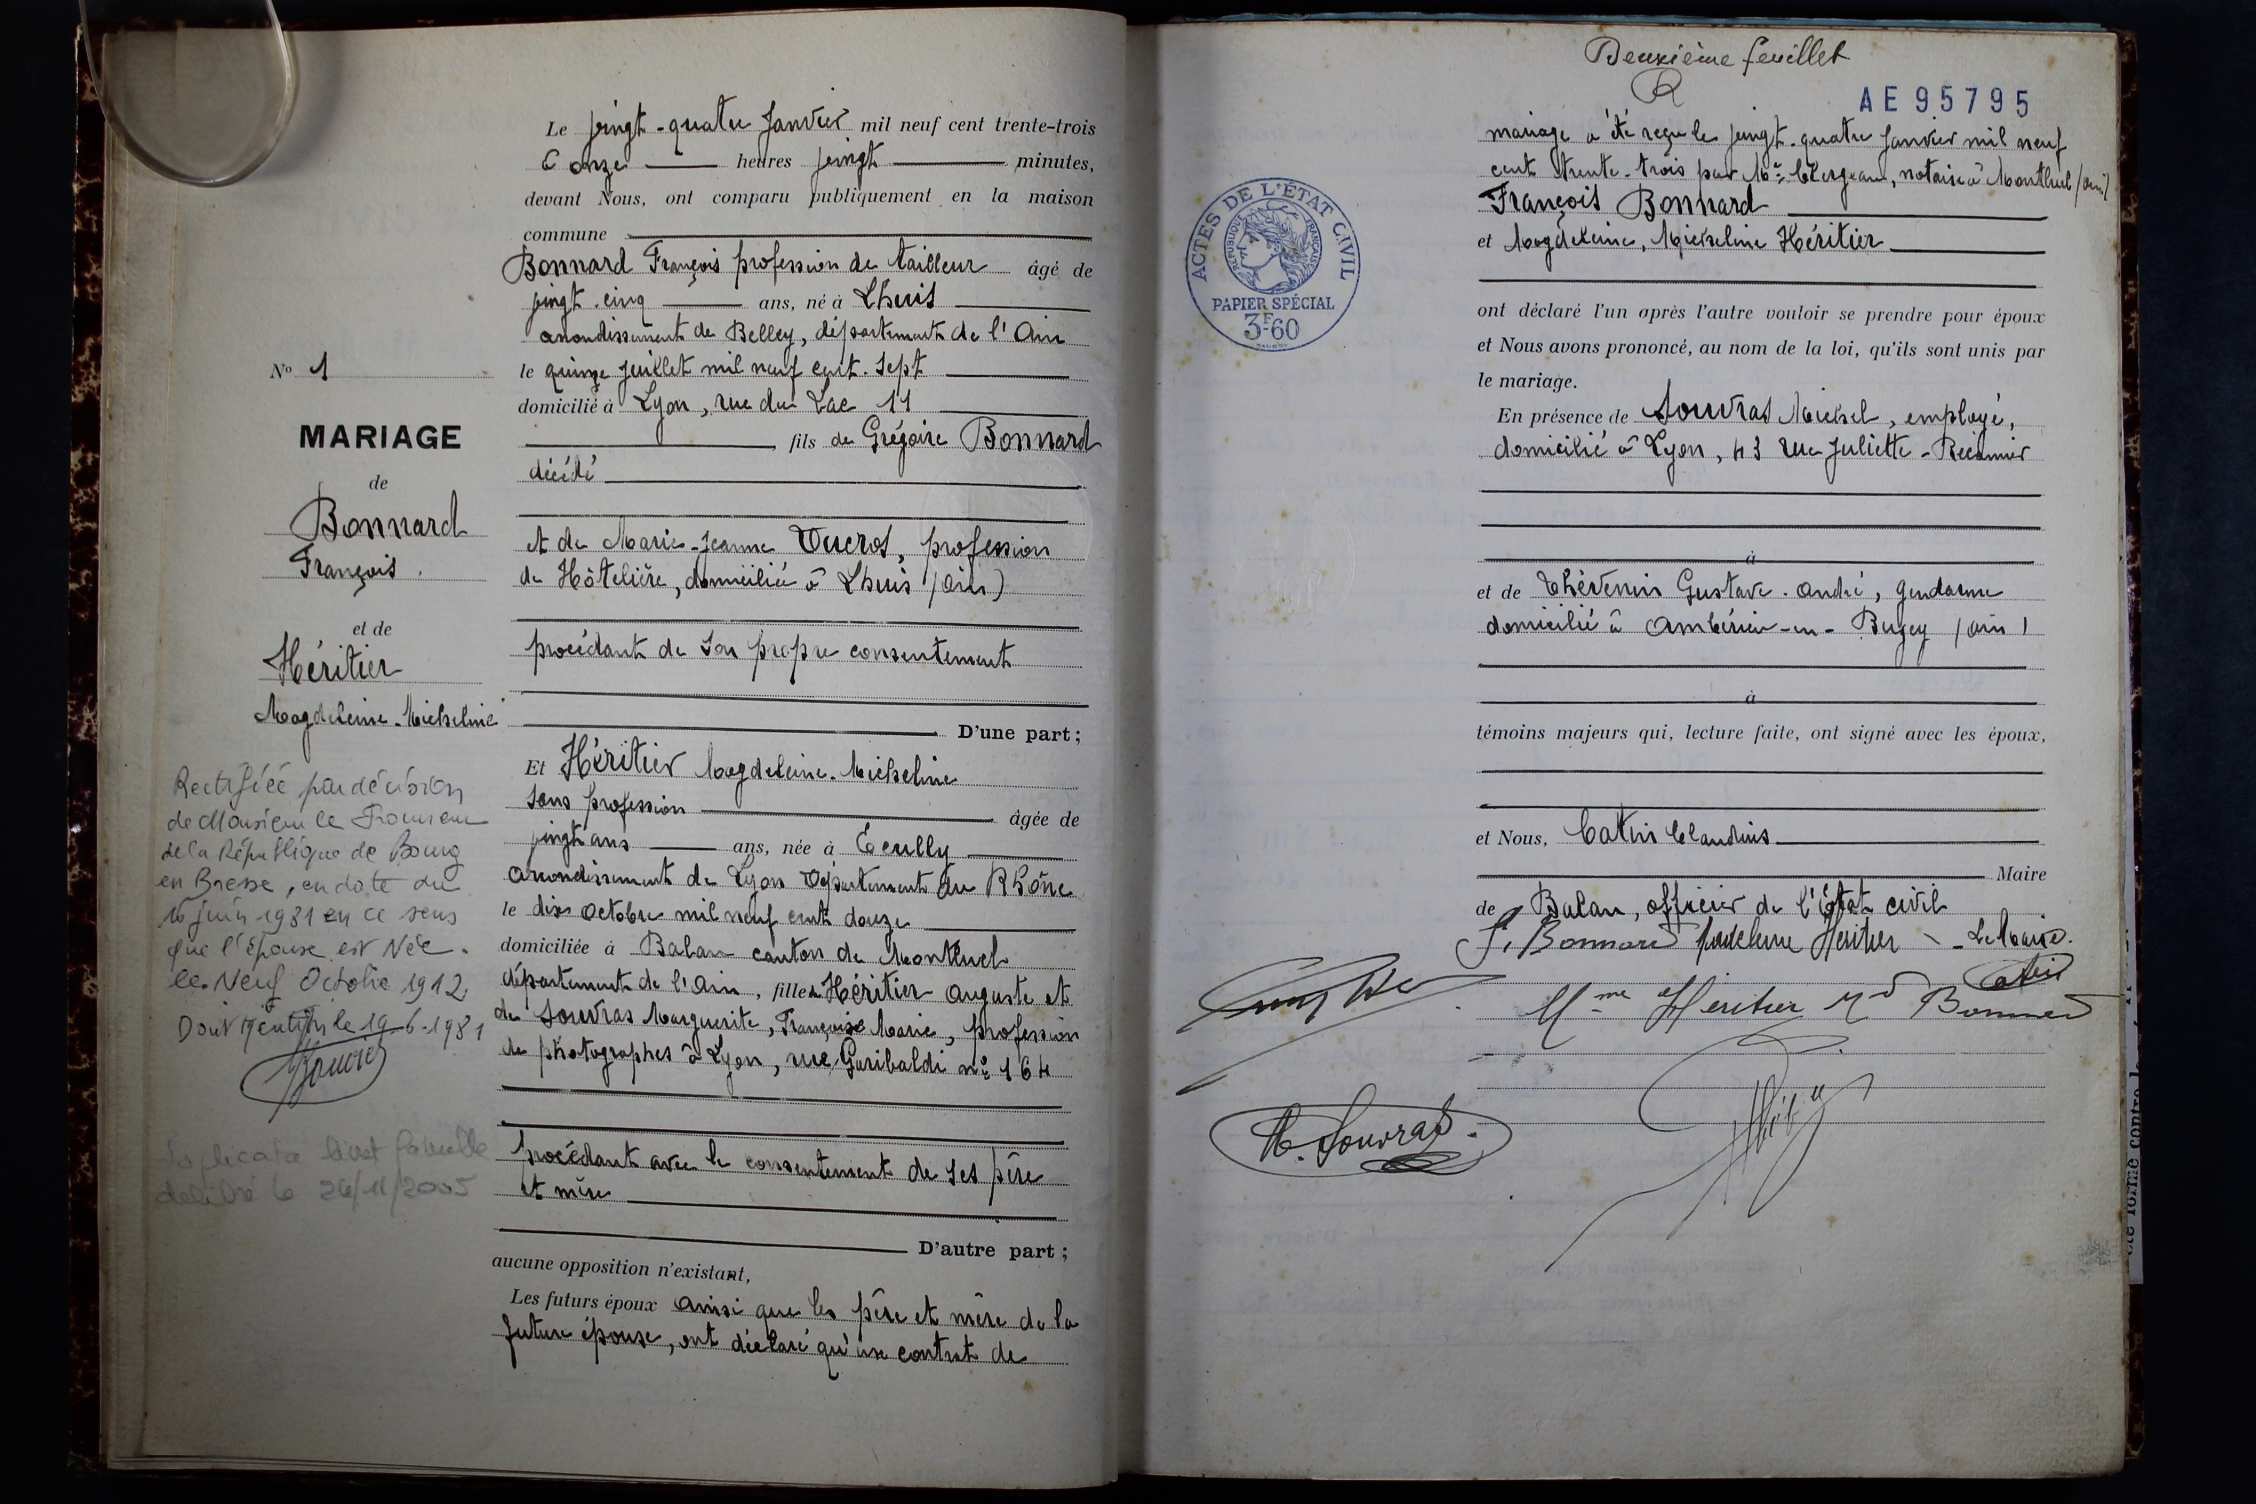 Le vingt-quatre Janvier mil neuf cent trente-trois
à onze heures vingt minutes,
devant Nous, ont comparu publiquement en la maison
commune
Bonnard François profession de tailleur âgé de
vingt-cinq ans, né à Lhuis
arrondissement de Belley, département de l'Ain
le quinze juillet mil neuf cent sept
domicilié à Lyon, rue du Lac 11
fils de Grégoire Bonnard
décédé
et de Marie-Jeanne Ducros, profession
de Hôtelière, domiciliée à Lhuis (Ain)
procédant de son propre consentement
D'une part;
Et Héritier Magdeleine-Micheline
sans profession âgée de
vingt ans ans, née à Ecully
arrondissement de Lyon Département du Rhône
le dix octobre mil neuf cent douze
domiciliée à Balan canton de Montluel
département de l'Ain, fille de Héritier Auguste et
de Souvras Marguerite, Françoise Marie, profession
de photographes à Lyon, rue Garibaldi nº 164
procédant avec le consentement de ses père
et mère
D'autre part;
aucune opposition n'existant,
Les futurs époux ainsi que les père et mère de la
future épouse, ont déclaré qu'un contrat de
Nº 1
MARIAGE
de
Bonnard
François.
et de
Héritier
Magdeleine-Micheline
Rectifiée par décision
de Monsieur le Procureur
de la République de Bourg
en Bresse, en date du
16 juin 1981 en ce sens
que l'épouse est Née.
le. Neuf Octobre 1912.
Dont Mention le 19-6-1981
Duplicata livret famille
délivré le 26/11/2005
Deuxième feuillet
AE95795
mariage a été reçu le vingt-quatre Janvier mil neuf
cent trente-trois par Me Clergeau, notaire à Montluel (Ain)
François Bonnard
et Magdeleine, Micheline Héritier
ont déclaré l'un après l'autre vouloir se prendre pour époux
et Nous avons prononcé, au nom de la loi, qu'ils sont unis par
le mariage.
En présence de Souvras Michel, employé,
domicilié à Lyon, 43 rue Juliette-Récamier
à
et de Thévenin Gustave-André, gendarme
domicilié à Ambérieu-en-Bugey (Ain)
à
témoins majeurs qui, lecture faite, ont signé avec les époux,
et Nous, Catin Claudius
Maire
de Balan, officier de l'état civil
F. Bonnard Madeleine Héritier Le Maire.
Catin
Mme Héritier Vve Bonnard
M. Souvras.
ACTES DE L'ÉTAT CIVIL
RÉPUBLIQUE FRANÇAISE
PAPIER SPÉCIAL
3F60